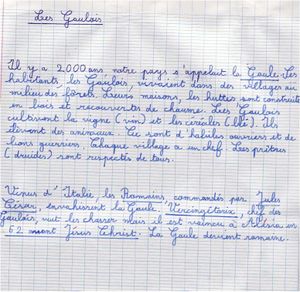 Les Gaulois
Il y a 2000 ans notre pays s'appelait la Gaule. Les
habitants, les Gaulois, vivaient dans des villages au
milieu des forêts. Leurs maisons, les huttes sont construites
en bois et recouvertes de chaume. Les Gaulois
cultivent la vigne (vin) et les céréales (blé). Ils
élèvent des animaux. Ce sont d'habiles ouvriers et de
bons guerriers. Chaque village a un chef. Les prêtres
(druides) sont respectés de tous.
Venus d'Italie, les Romains, commandés par Jules
César, envahissent la Gaule. Vercingétorix, chef des
Gaulois, veut les chasser mais il est vaincu à Alésia en
52 avant Jésus Christ. La Gaule devient romaine.